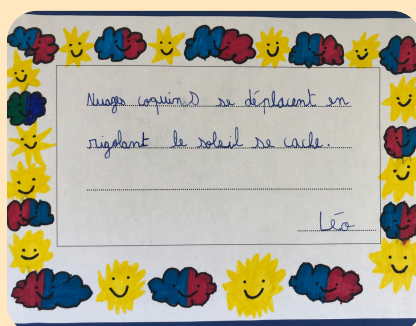 Nuages coquins se déplacent en
rigolant le soleil se cache.
Léo